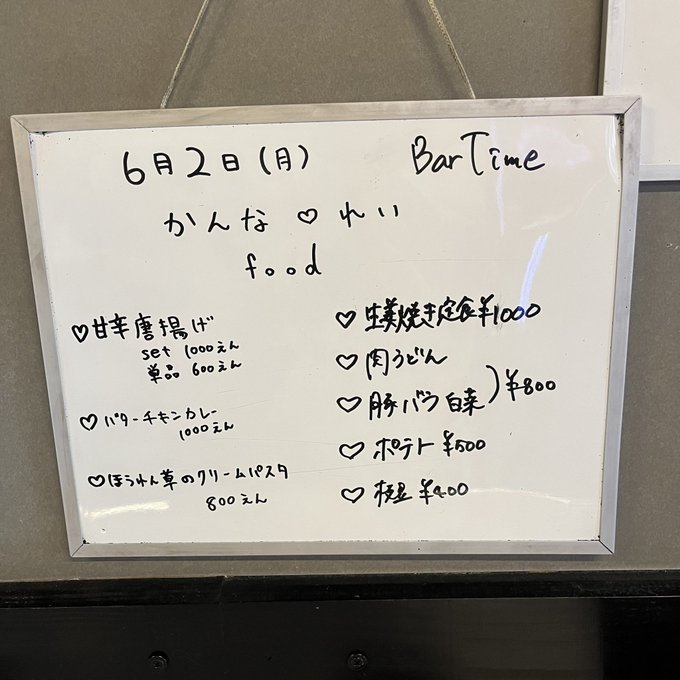 6月2日(月) Bar Time
かんな ♡ れい
food
♡甘辛唐揚げ
set 1000えん
単品 600えん
♡バターチキンカレー
1000えん
♡ほうれん草のクリームパスタ
800えん
♡生姜焼き定食¥1000
♡肉うどん
♡豚バラ白菜)¥800
♡ポテト¥500
♡枝豆¥400